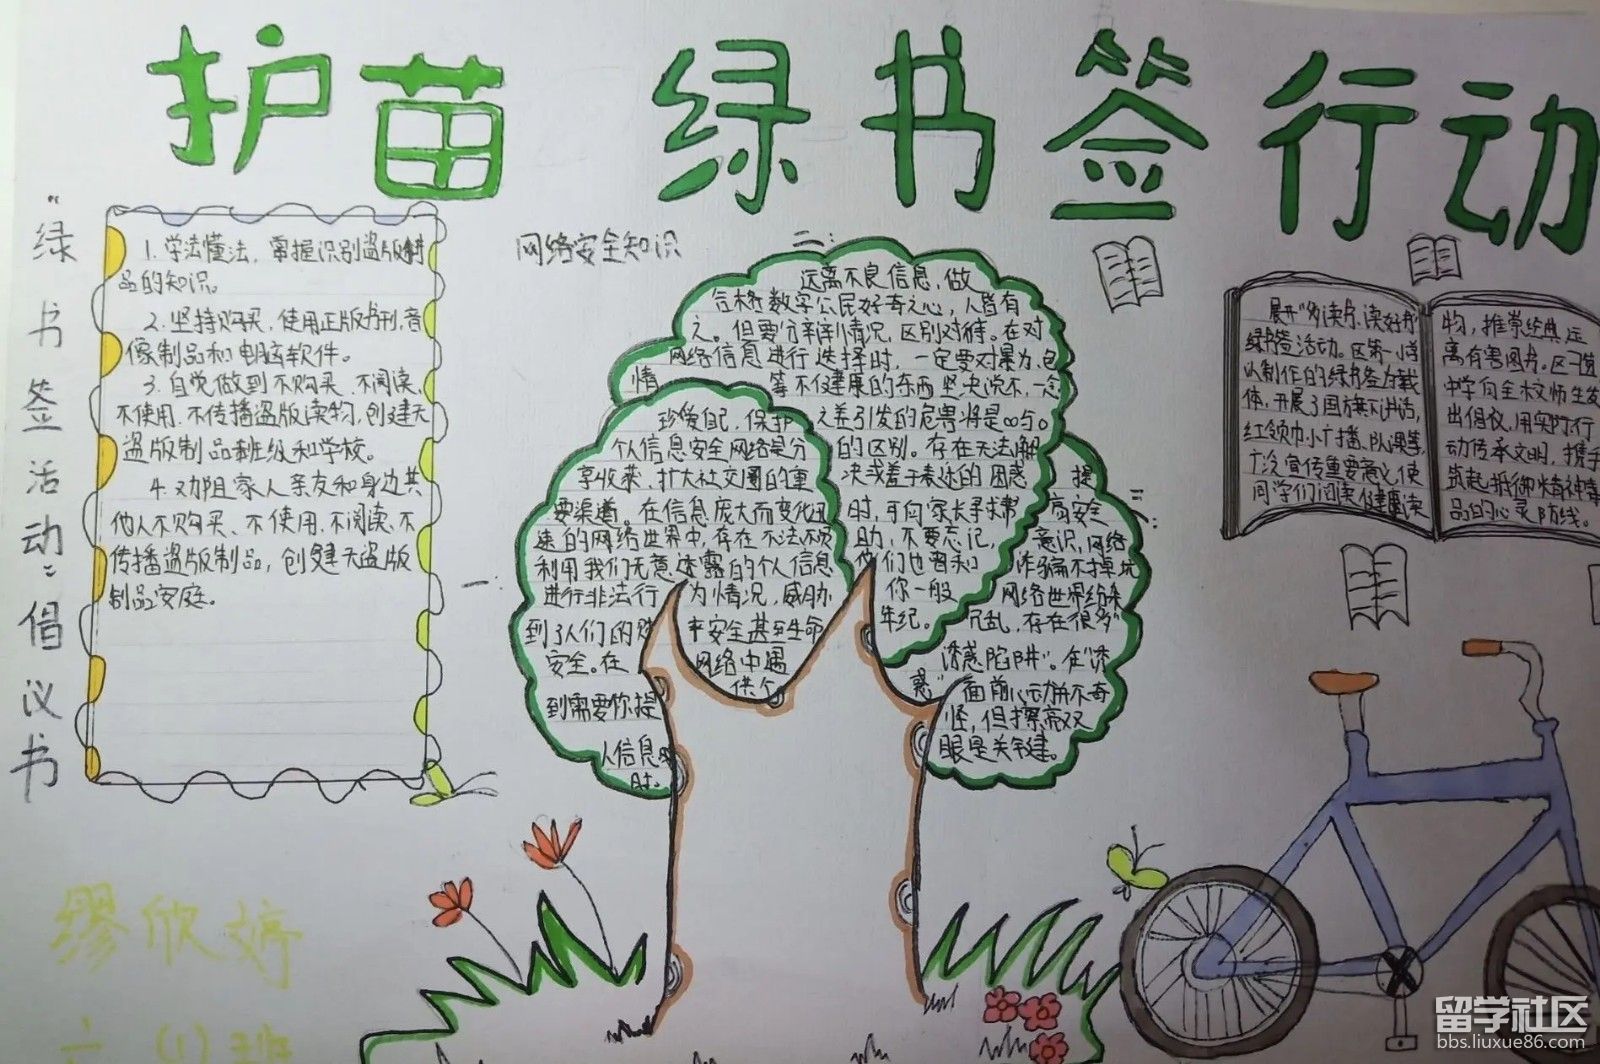 护苗 绿书签行动
“绿书签活动”倡议书
1. 学法懂法，掌握识别盗版制
品的知识。
2. 坚持购买，使用正版书刊，音
像制品和电脑软件。
3. 自觉做到不购买、不阅读、
不使用、不传播盗版读物，创建无
盗版制品班级和学校。
4. 劝阻家人亲友和身边其
他人不购买、不使用、不阅读、不
传播盗版制品，创建无盗版
制品家庭。
网络安全知识
一：
珍爱自己，保护
个人信息安全网络是分
享收获，扩大社交圈的重
要渠道。在信息庞大而变化迅
速的网络世界中，存在不法不
利用我们无意透露的个人信息
进行非法行为情况，威胁
到了人们的财产安全甚至生命
安全。在网络中遇
到需要你提供个
人信息
时。
二：
远离不良信息，做
合格数字公民好奇之心，人皆有
之。但要分辨情况，区别对待。在对
网络信息进行选择时，一定要对暴力、色
情等不健康的东西坚决说不，一念
之差引发的危害将是∞与0
的区别。存在无法解
决或羞于表达的困惑
时，可向家长寻求帮
助，不要忘记，
他们也曾和
你一般
年纪。
三：
提
高安全
意识，网络
诈骗不掉坑
网络世界纷杂
冗乱，存在很多“
诱惑陷阱”。在“诱
惑”面前心动并不奇
怪，但擦亮双
眼是关键。
展开“多读书、读好书”
绿书签活动。区第一小学
以制作的绿书签为载
体，开展了国旗下讲话，
红领巾小广播、队课等，
广泛宣传重要意义，使
同学们阅读健康读
物，推崇经典，远
离有害图书。区
中学向全校师生发
出倡议，用实际行
动传承文明，携手
筑起抵御精神毒
品的心灵防线。
缪欣婷
六（1）班
留学社区
bbs.liuxue86.com